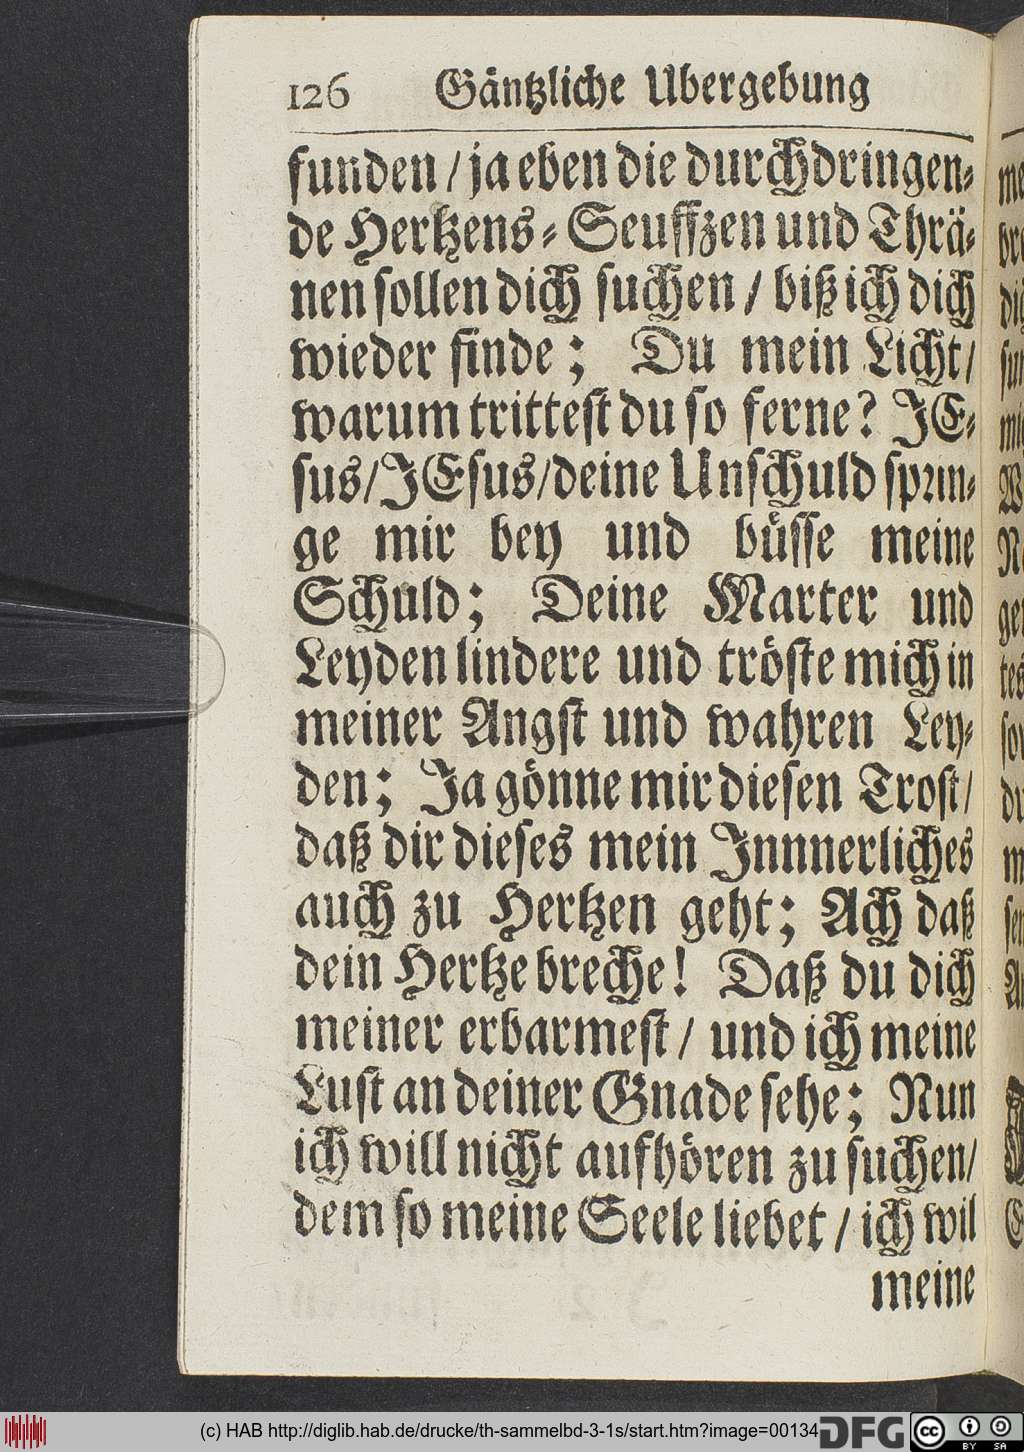 126 Gäntzliche Ubergebung
funden / ja eben die durchdringen-
de Hertzens-Seuffzen und Thrä-
nen sollen dich suchen / biß ich dich
wieder finde; Du mein Licht/
warum trittest du so ferne? JE-
sus/JEsus/deine Unschuld sprin-
ge mir bey und büsse meine
Schuld; Deine Marter und
Leyden lindere und tröste mich in
meiner Angst und wahren Ley-
den; Ja gönne mir diesen Trost/
daß dir dieses mein Jnnnerliches
auch zu Hertzen geht; Ach daß
dein Hertze breche! Daß du dich
meiner erbarmest / und ich meine
Lust an deiner Gnade sehe; Nun
ich will nicht aufhören zu suchen/
dem so meine Seele liebet / ich wil
meine
(c) HAB http://diglib.hab.de/drucke/th-sammelbd-3-1s/start.htm?image=00134
DFG
cc BY SA